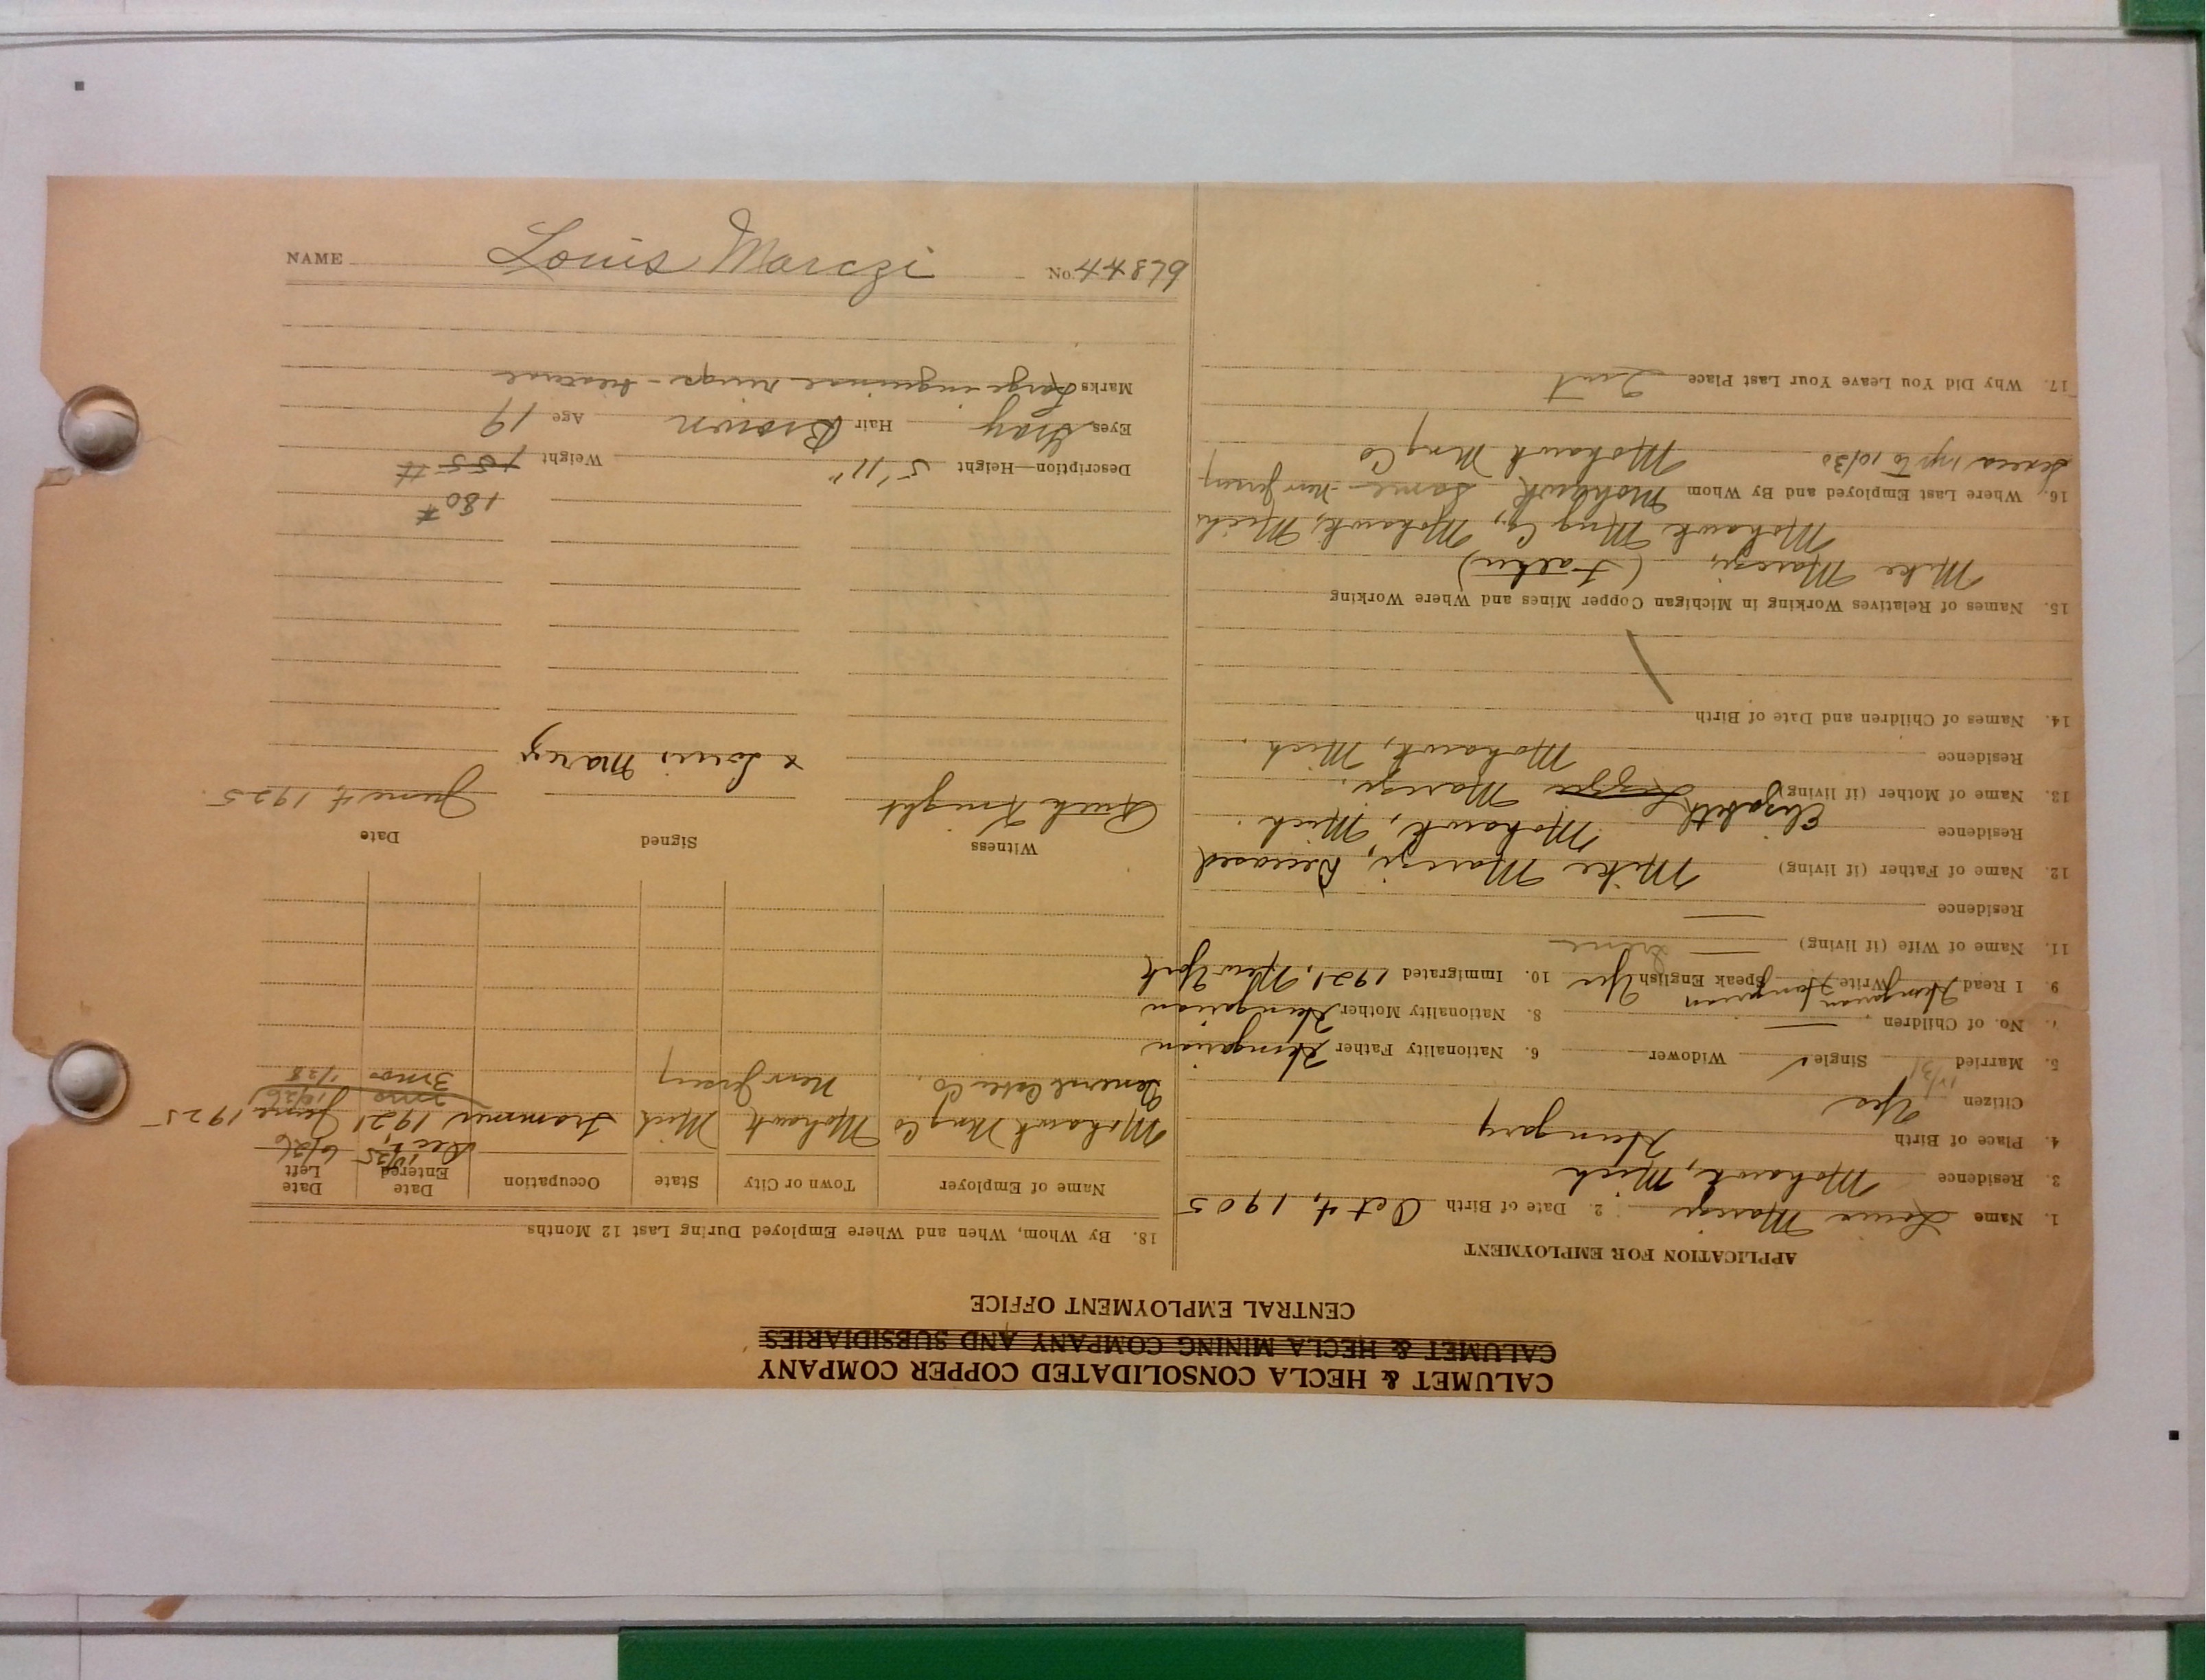 CALUMET & HECLA CONSOLIDATED COPPER COMPANY
CALUMET & HECLA MINING COMPANY AND SUBSIDIARIES
CENTRAL EMPLOYMENT OFFICE
APPLICATION FOR EMPLOYMENT
1. Name Louis Marczi 2. Date of Birth Oct 4, 1905
3. Residence Mohawk, Mich
4. Place of Birth Hungary
Citizen Yes
5. Married Single ✓ Widower 6. Nationality Father Hungarian
7. No. of Children — 8. Nationality Mother Hungarian
9. I Read Hungarian Write Hungarian Speak English Yes 10. Immigrated 1921, New York
11. Name of Wife (if living) — Irene
Residence —
12. Name of Father (if living) Mike Marczi, Deceased
Residence Mohawk, Mich.
13. Name of Mother (if living) Elizabeth Marczi.
Residence Mohawk, Mich.
14. Names of Children and Date of Birth
15. Names of Relatives Working in Michigan Copper Mines and Where Working
Mike Marczi, (Father)
Mohawk Mng Co, Mohawk, Mich
16. Where Last Employed and By Whom Mohawk Same - New Jersey
Seneca 1 yr to 10/30 Mohawk Mng Co
17. Why Did You Leave Your Last Place Quit
18. By Whom, When and Where Employed During Last 12 Months
Name of Employer Town or City State Occupation Date Entered Date Left
10/25 6/26
Mohawk Mng Co Mohawk Mich Trammer Dec 1, 1921 June 1925
General Cable Co. New Jersey 3 mos 1/28
Witness Signed Date
Ruth Knight x Louis Marczi June 4, 1925.
180 #
Description—Height 5' 11" Weight 155 #
Eyes Gray Hair Brown Age 19
Marks Large inguinal rings -
NAME Louis Marczi No. 44879